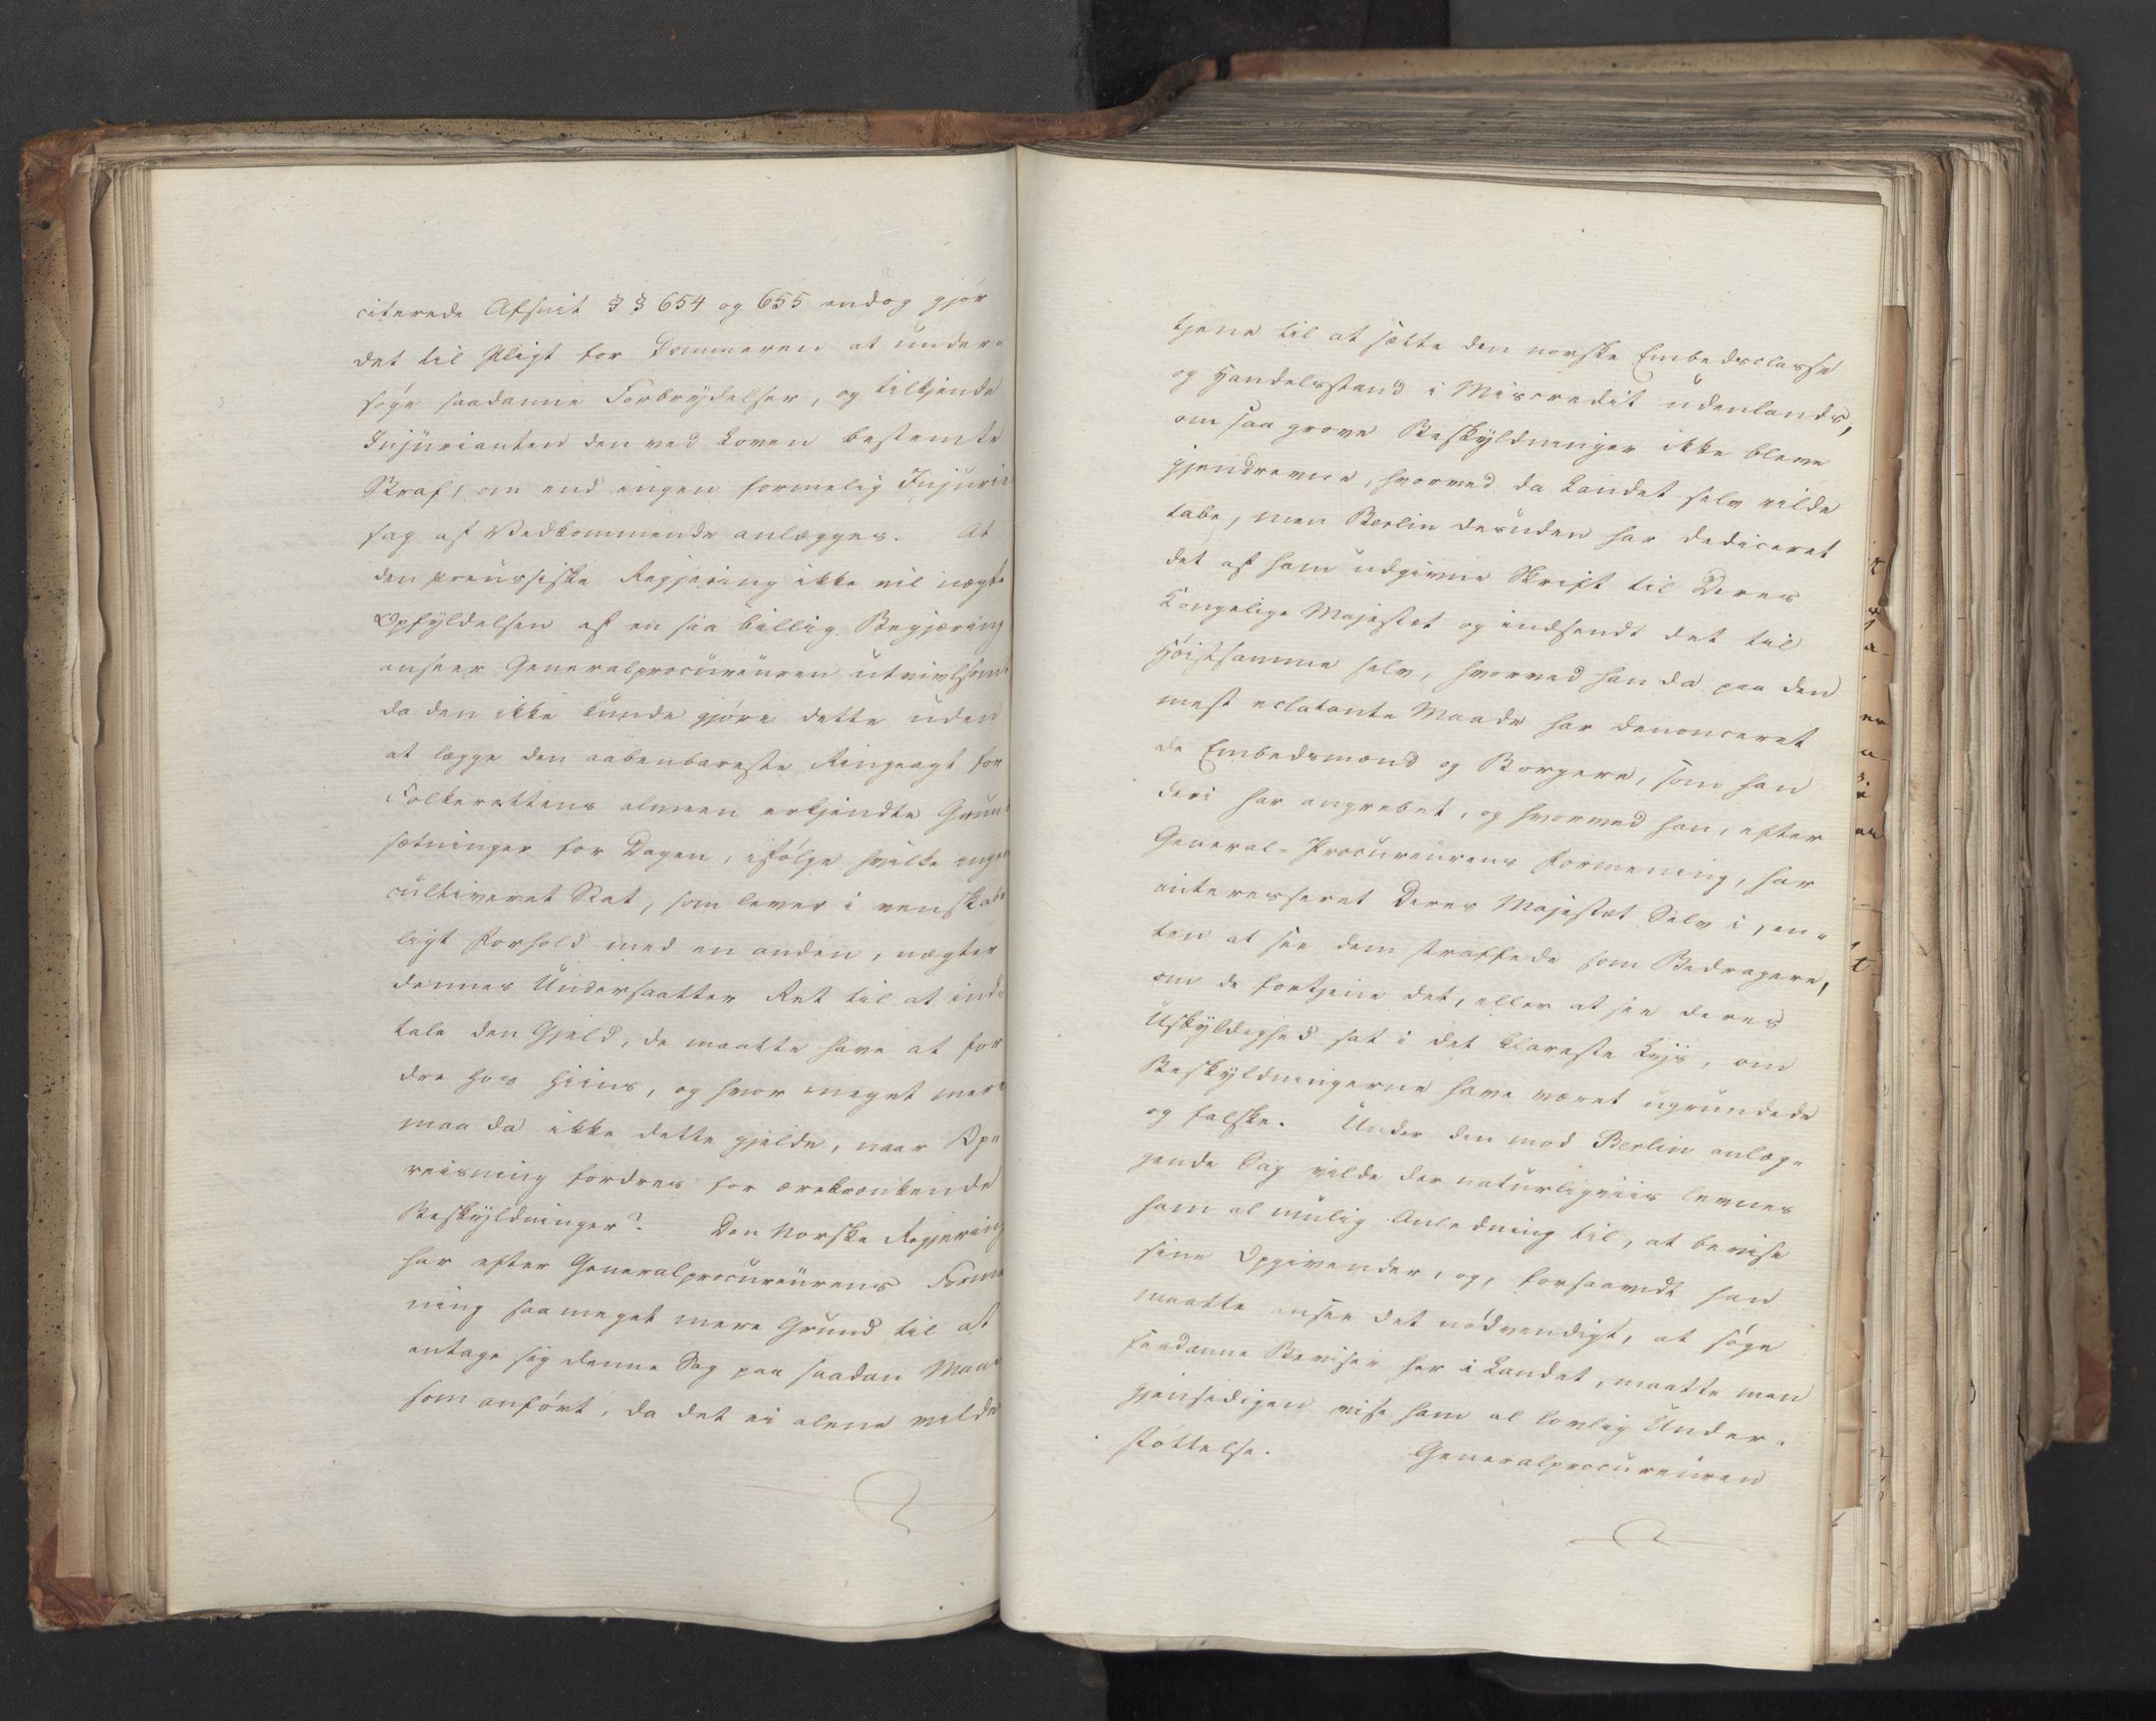 citerede Afsnit §§ 654 og 655 endog gjør
det til Pligt for Dommeren at under-
søge saadanne Forbrydelser, og tilkjende
Injurianten den ved Loven bestemte
Straf, om end ingen formelig Injurie
sag af Vedkommende anlægges. At
den preussiske Regjering ikke vil nægte
Opfyldelsen af en saa billig Begjæring
anseer Generalprocureuren utvivlsom
da den ikke kunde gjøre dette uden
at lægge den aabenbareste Ringeagt for
Folkerettens almeen erkjendte Grund
sætninger for Dagen, ifølge hvilke ingen
cultiveret Stat, som lever i venskabe
ligt Forhold med en anden, nægter
dennes Undersaatter Ret til at ind-
tale den Gjeld, de maatte have at for
dre hos hiins, og hvor meget mere
maa da ikke dette gjelde, naar Op
reisning fordres for ærekrænkende
Beskyldninger? Den Norske Regjering
har efter Generalprocureurens Forme
ning saameget mere Grund til at
antage sig denne Sag paa saadan Maade
som anført, da det ei alene vilde
tjene til at sætte den norske Embedsclasse
og Handelsstand i Miscredit udenlands,
om saa grove Beskyldninger ikke bleve
gjendrevne, hvorved da Landet selv vilde
tabe, men Berlin desuden har dediceret
det af ham udgivne Skrift til Deres
Kongelige Majestæt og indsendt det til
Høistsamme selv, hvorved han da paa den
mest eclatante Maade har denonceret
de Embedsmænd og Borgere, som han
deri har angrebet, og hvorved han, efter
General-Procureurens Formening, har
interesseret Deres Majestæt Selv i, en-
ten at see dem straffede som Bedragere,
om de fortjene det, eller at see deres
Uskyldighed sat i det klareste Lys, om
Beskyldningerne have været ugrundede
og falske. Under den mod Berlin anlæg-
gende Sag vilde der naturligviis levnes
ham al mulig Anledning til, at bevise
sine Opgivender, og, forsaavidt han
maatte ansee det nødvendigt, at søge
saadanne Beviser her i Landet, maatte man
gjensidigen vise ham al lovlig Under-
støttelse. Generalprocureuren